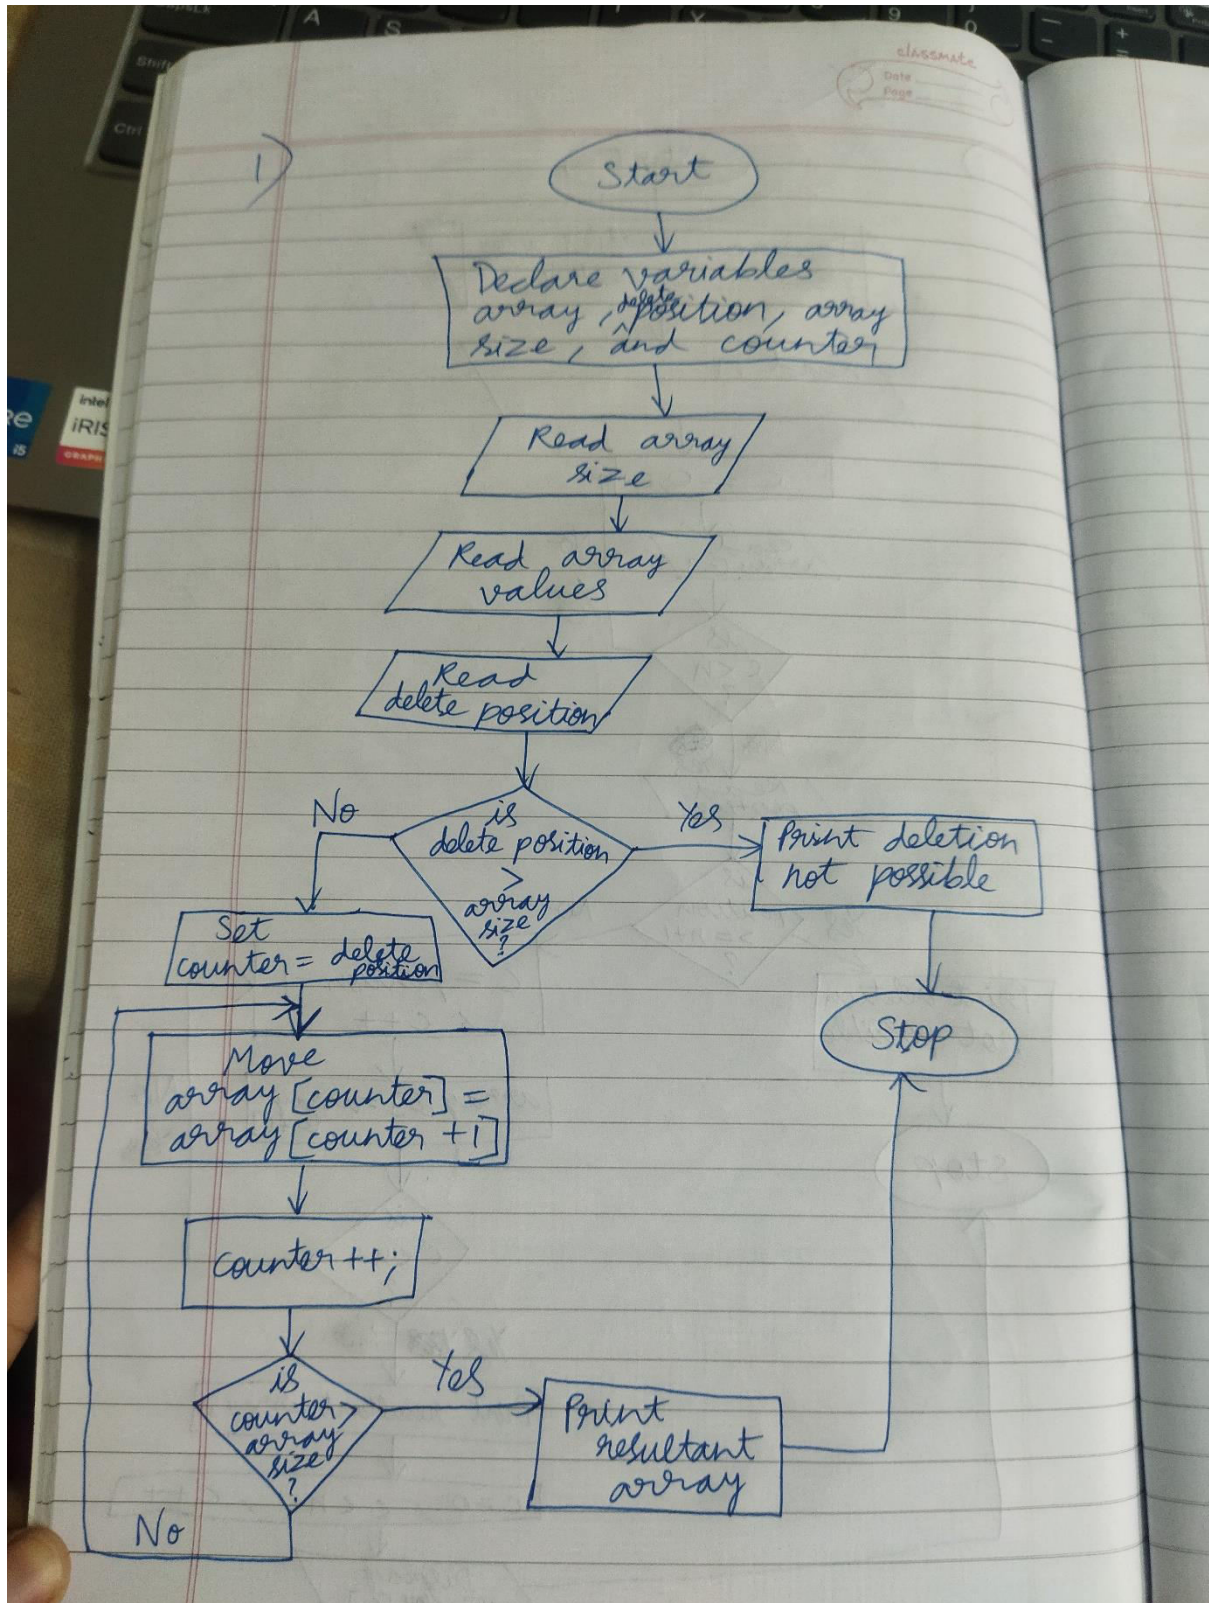 classmate
Date
Page
1)
Start
Declare variables
array, delete position, array
size, and counter
Read array
size
Read array
values
Read
delete position
is
delete position
>
array
size
?
No
Yes
Print deletion
not possible
Stop
Set
counter = delete
position
Move
array [counter] =
array [counter +1]
counter ++;
is
counter >
array
size
?
Yes
No
Print
resultant
array
A
S
Shift
Ctrl
intel
iRIS
GRAPH
re
i5